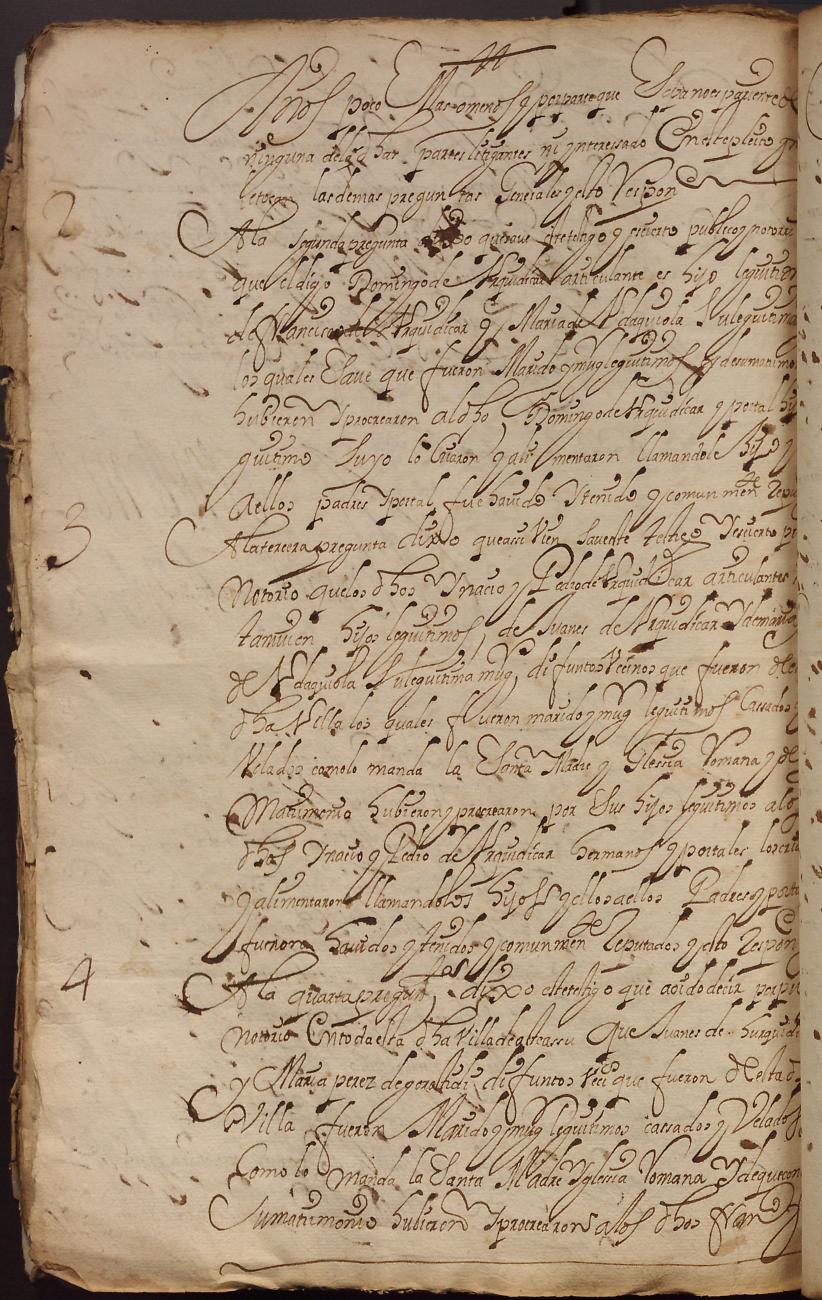 Años poco Mas omenos y por parte que Esta no es pariente de
ninguna delas dhas partes letigantes ni ynteressado En este pleito
letocan las demas preguntas Generales y esto Respon
2
Ala segunda pregunta dixo que save este testigo y es cierto publico y notorio
que el digo Domingo de Arquidicar articulante es hijo leguitim
de Francisco de Arquidicar y Maria de Adaguiola Su leguitima
los quales Save que fueron Marido y mug leguitimos y de su matrimo
hubieron y procrearon al dho Domingo de Arquidicar y por tal hijo
guitimo Suyo lo Criaron y alimentaron llamandole hijo y
a ellos padres y por tal fue havido y tenido y comunmente Repu
3
Ala tercera pregunta dixo que assi vien save este testigo y es cierto pu
Notorio que los dhos Ynacio y Pedro de Arquidicar articulantes
tamvien hijos leguitimos de Juanes de Arquidicar y de maria
de Adaguiola Su leguitima mug difuntos Vecinos que fueron de
dha Villa los quales fueron marido y mug leguitimos Cassados y
Velados como lo manda la Santa Madre Yglesia Romana y de
Matrimonio hubieron y procrearon por Sus hijos leguitimos alos
dhos Ynacio y Pedro de Arquidicar hermanos y por tales los cria
y alimentaron llamandoles hijos y ellos a ellos Padres y por ta
fueron havidos y tenidos y comunmente Reputados y esto Respon
4
Ala quarta pregunta dixo este testigo que a oido decir por pu
notorio En toda esta dha Villa de que Juanes de hurquidi
y Maria perez de difuntos veci que fueron de esta d
Villa fueron Marido y mug leguitimos cassados y Velados
Como lo Manda la Santa Madre Yglesia Romana y de que con
Su matrimonio hubieron y procrearon alos dhos